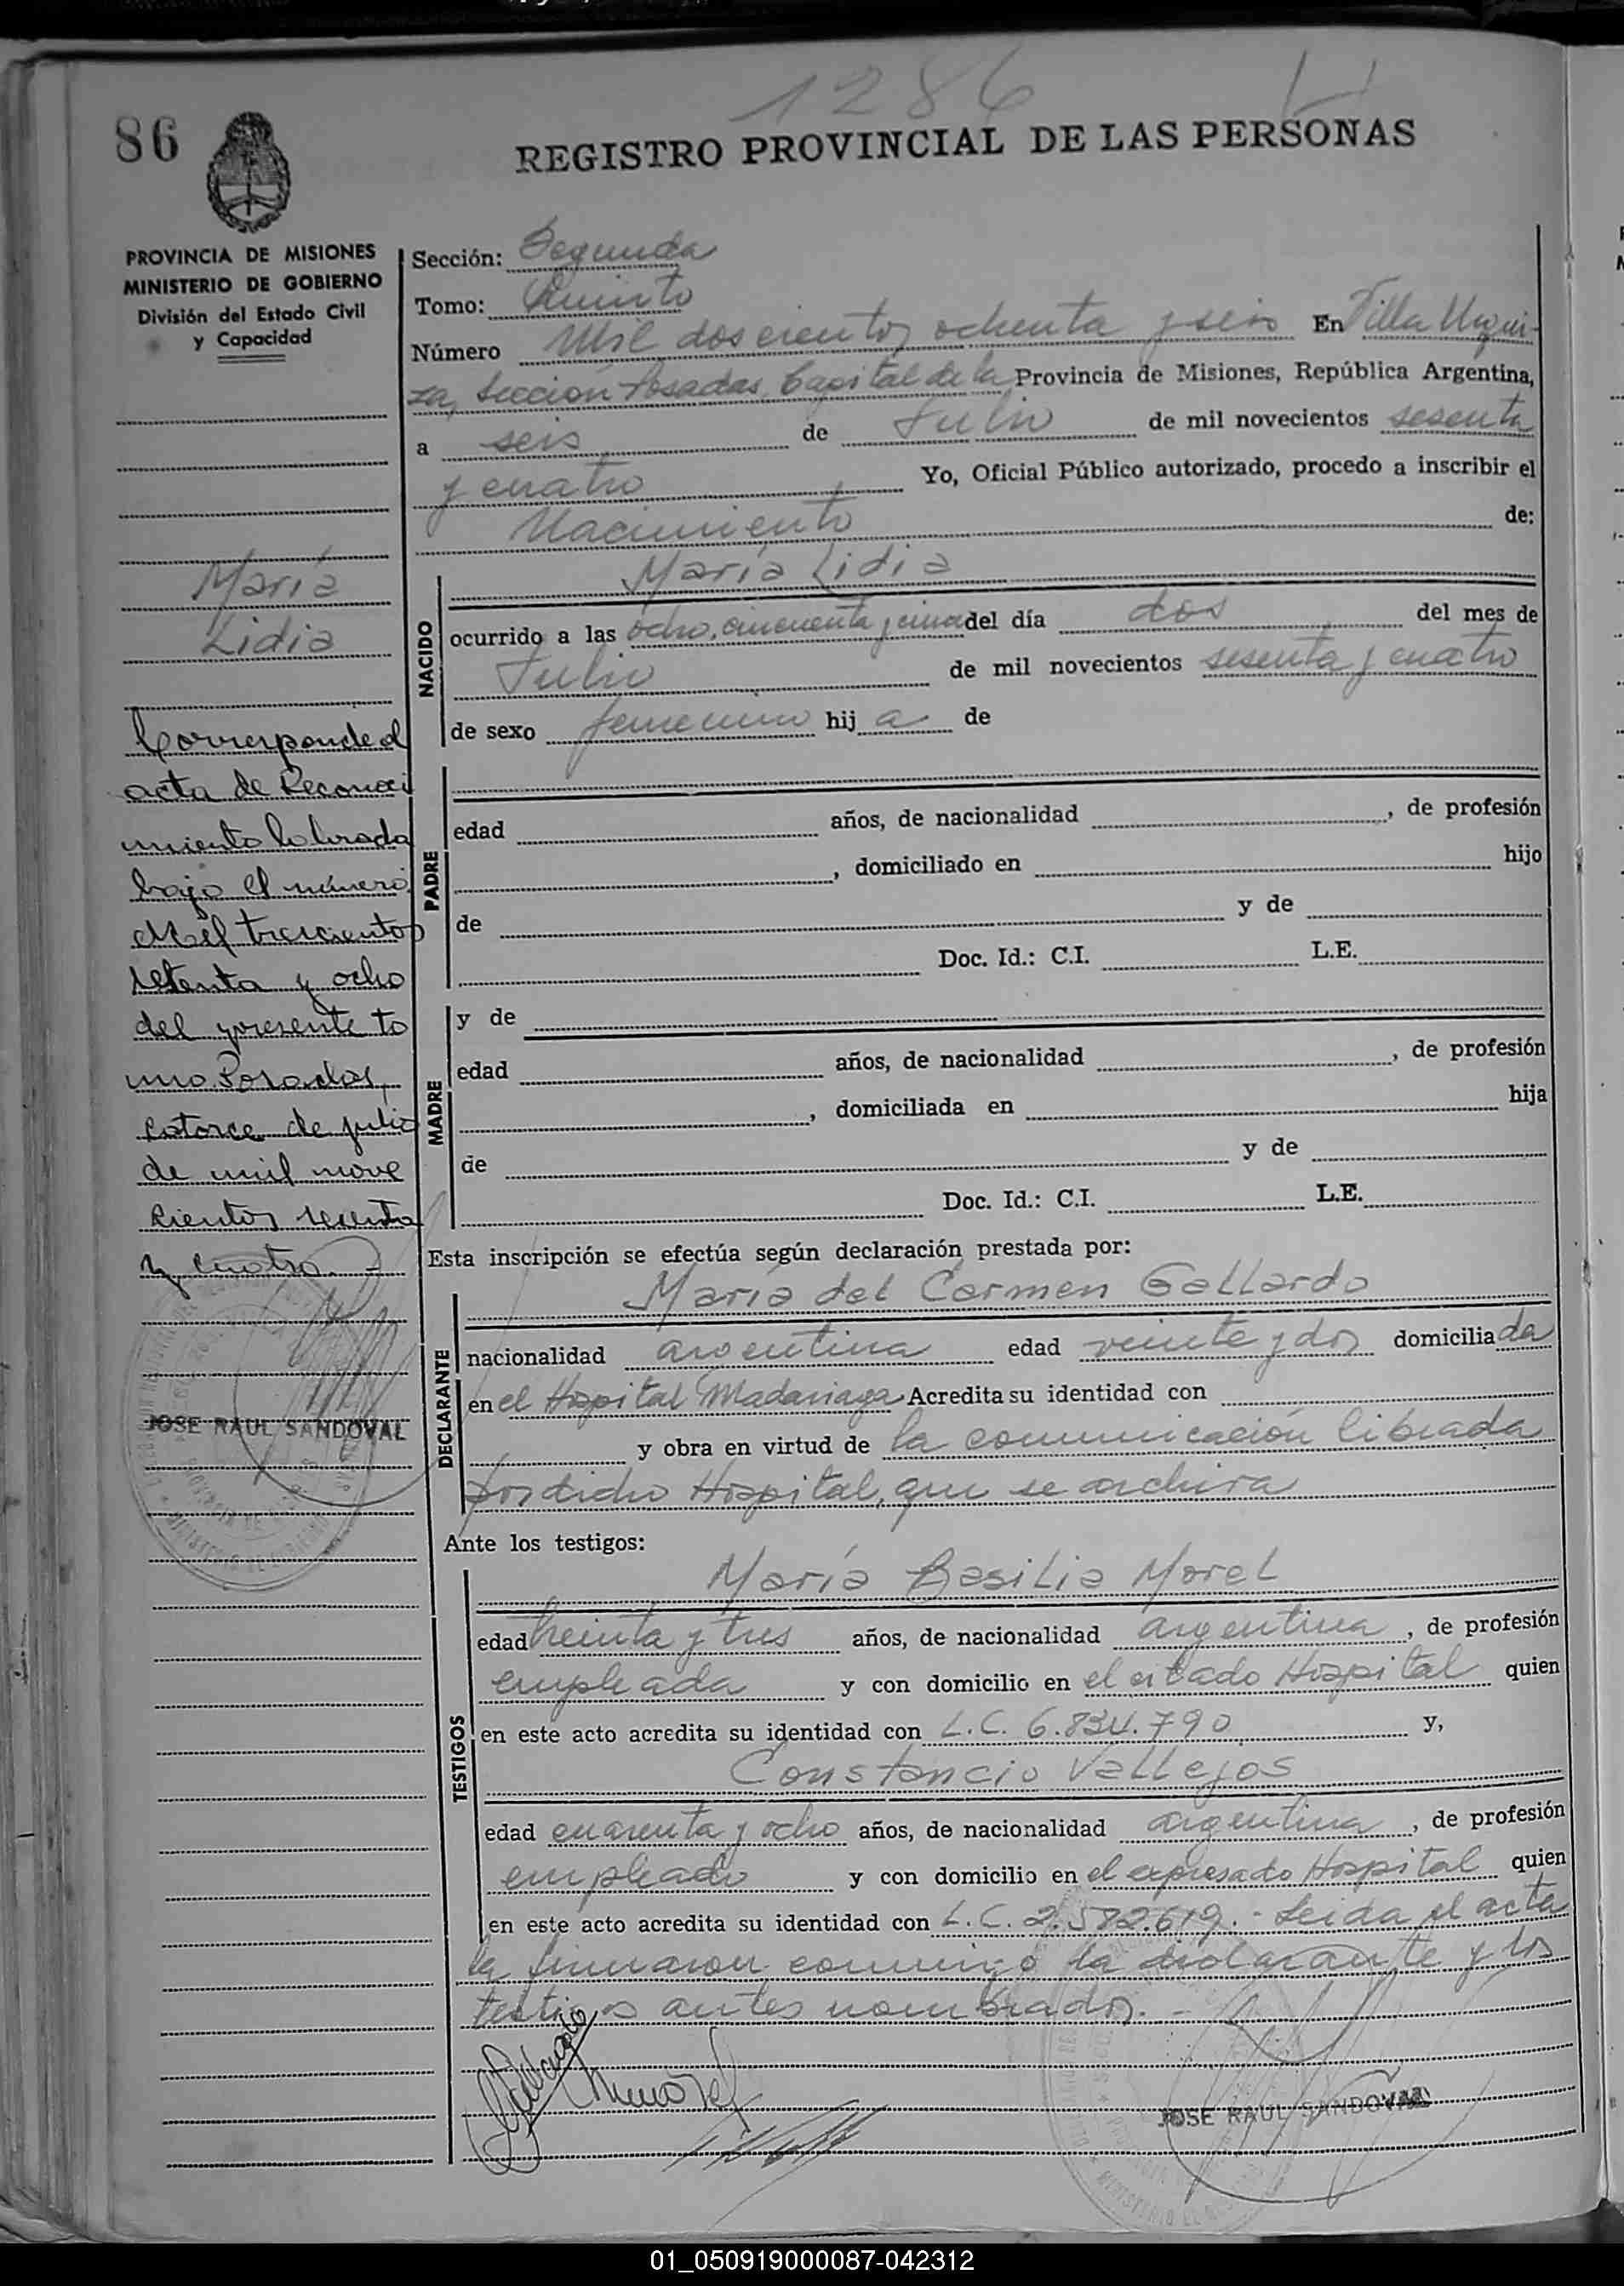 1286
86
REGISTRO PROVINCIAL DE LAS PERSONAS
PROVINCIA DE MISIONES
MINISTERIO DE GOBIERNO
División del Estado Civil
y Capacidad
María
Lidia
Corresponde al
acta de Reconoci
miento labrada
bajo el número
Mil trescientos
setenta y ocho
del presente to
mo. Posadas,
catorce de julio
de mil nove
cientos sesenta
y cuatro.
JOSE RAUL SANDOVAL
Sección: Segunda
Tomo: Quinto
Número Mil doscientos ochenta y seis En Villa Urqui-
za, Sección Posadas, Capital de la Provincia de Misiones, República Argentina,
a seis de Julio de mil novecientos sesenta
y cuatro Yo, Oficial Público autorizado, procedo a inscribir el
Nacimiento de:
NACIDO
María Lidia
ocurrido a las ocho, cincuenta y cinco del día dos del mes de
Julio de mil novecientos sesenta y cuatro
de sexo femenino hija de
PADRE
edad años, de nacionalidad , de profesión
, domiciliado en hijo
de y de
Doc. Id.: C.I. L.E.
MADRE
y de
edad años, de nacionalidad , de profesión
, domiciliada en hija
de y de
Doc. Id.: C.I. L.E.
Esta inscripción se efectúa según declaración prestada por:
DECLARANTE
María del Carmen Gallardo
nacionalidad argentina edad veinte y dos domiciliada
en el Hospital Madariaga Acredita su identidad con
y obra en virtud de la comunicación librada
por dicho Hospital, que se archiva
Ante los testigos:
TESTIGOS
María Basilia Morel
edad treinta y tres años, de nacionalidad argentina, de profesión
empleada y con domicilio en el citado Hospital quien
en este acto acredita su identidad con L.C. 6.834.790 y,
Constancio Vallejos
edad cuarenta y ocho años, de nacionalidad argentina, de profesión
empleado y con domicilio en el expresado Hospital quien
en este acto acredita su identidad con L.C. 2.582.619.- Leida el acta
la firmaron conmigo la declarante y los
testigos antes nombrados.-
JOSE RAUL SANDOVAL
01_050919000087-042312